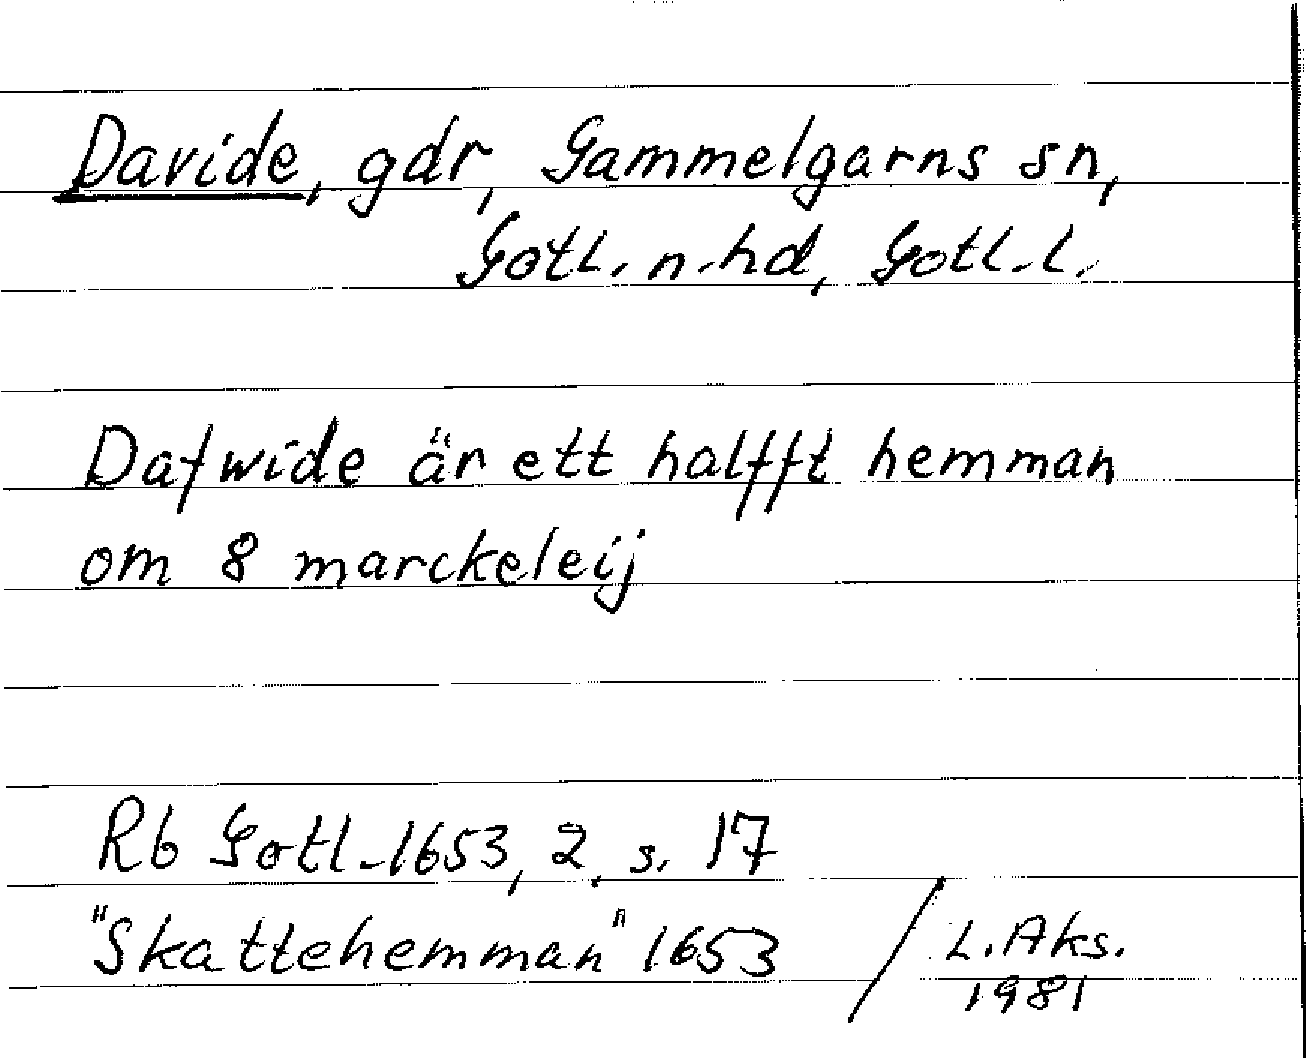 Davide, gdr, Gammelgarns sn,
Gotl. n. hd, Gotl. l.
Dafwide är ett halfft hemman
om 8 marckeleij
Rb Gotl. 1653, 2, s. 17
"Skattehemman" 1653
L. Aks.
1981